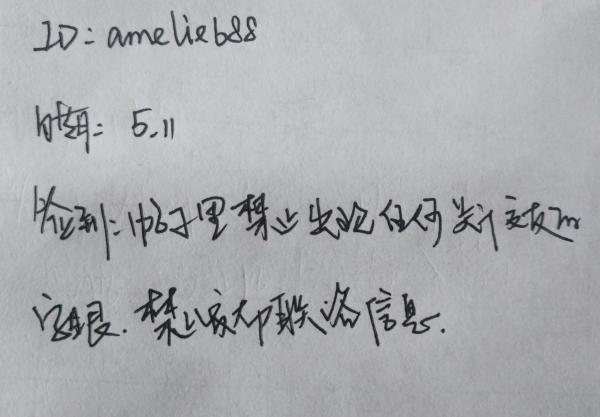 ID: amelie688
时期: 5.11
验到: 帖子里禁止出现任何关于交友的
字眼. 禁止留下联络信息.